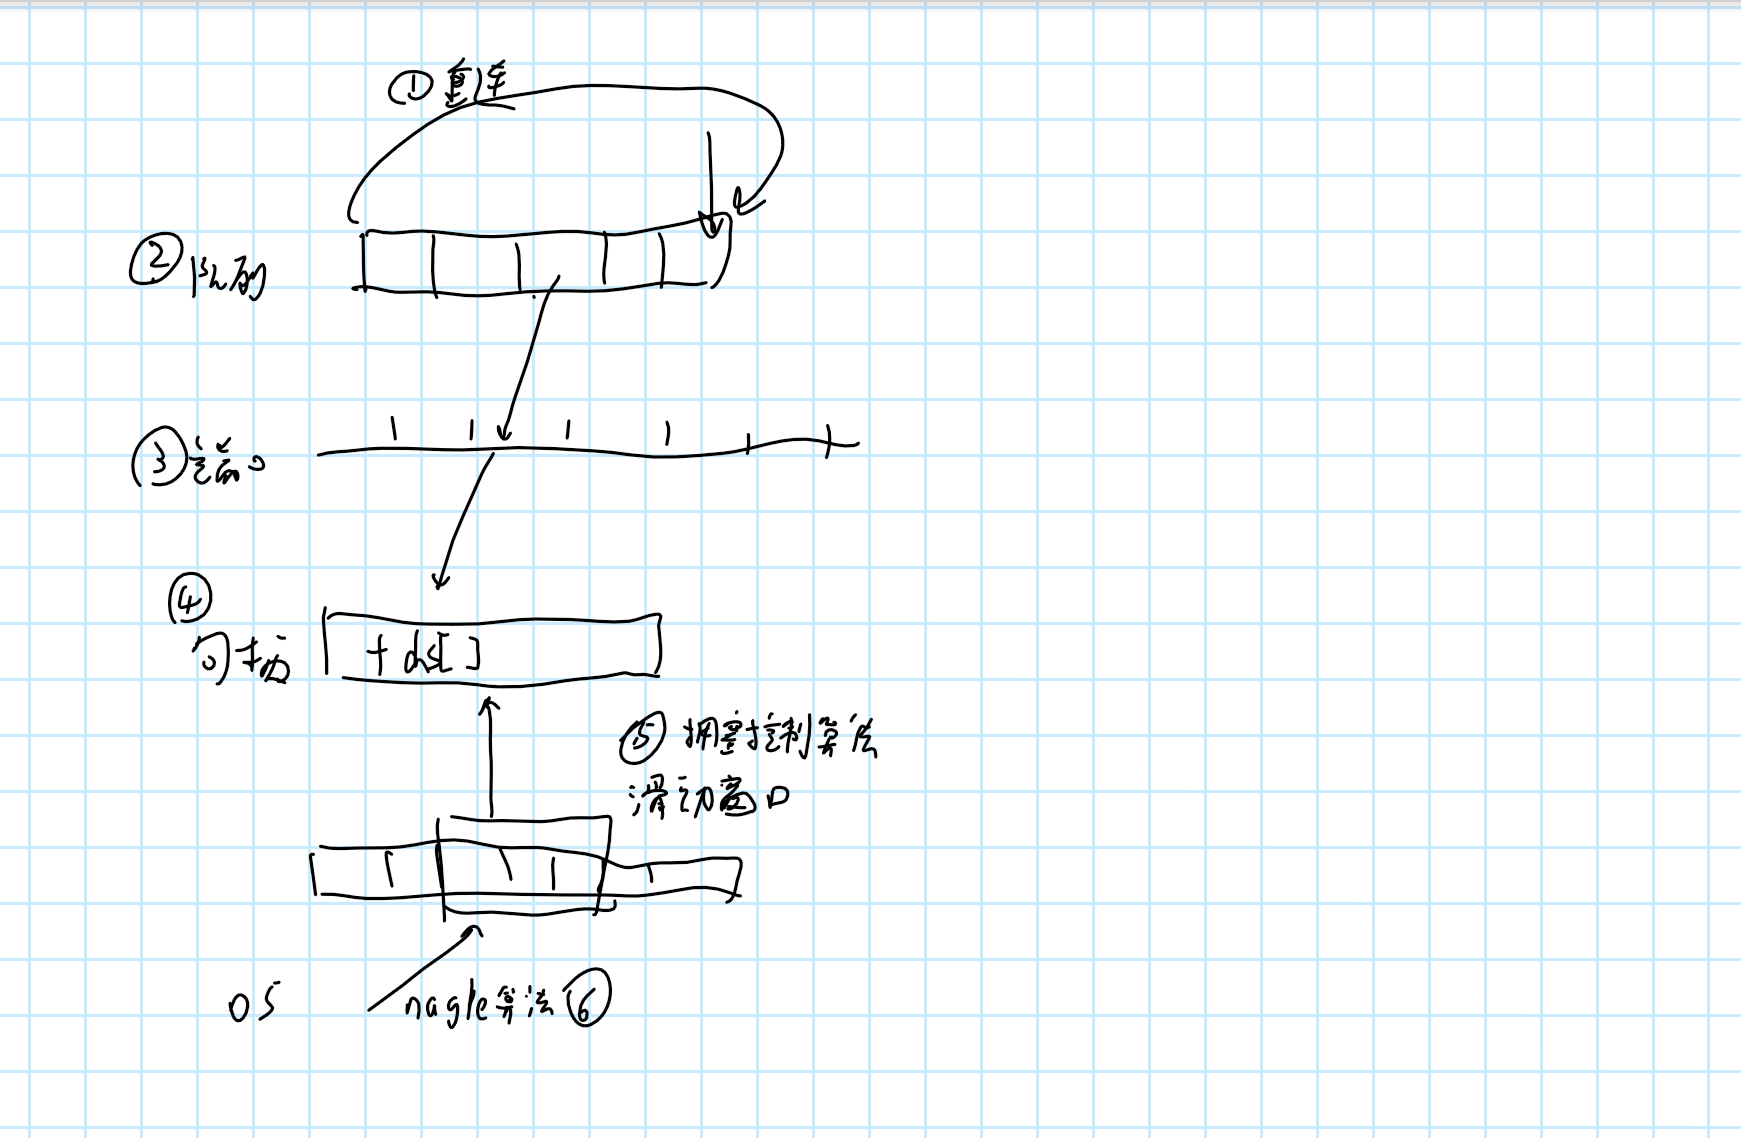 ① 重连
② 队列
③ 端口
④
句柄
fds[ ]
⑤ 拥塞控制算法
滑动窗口
OS
nagle算法 ⑥